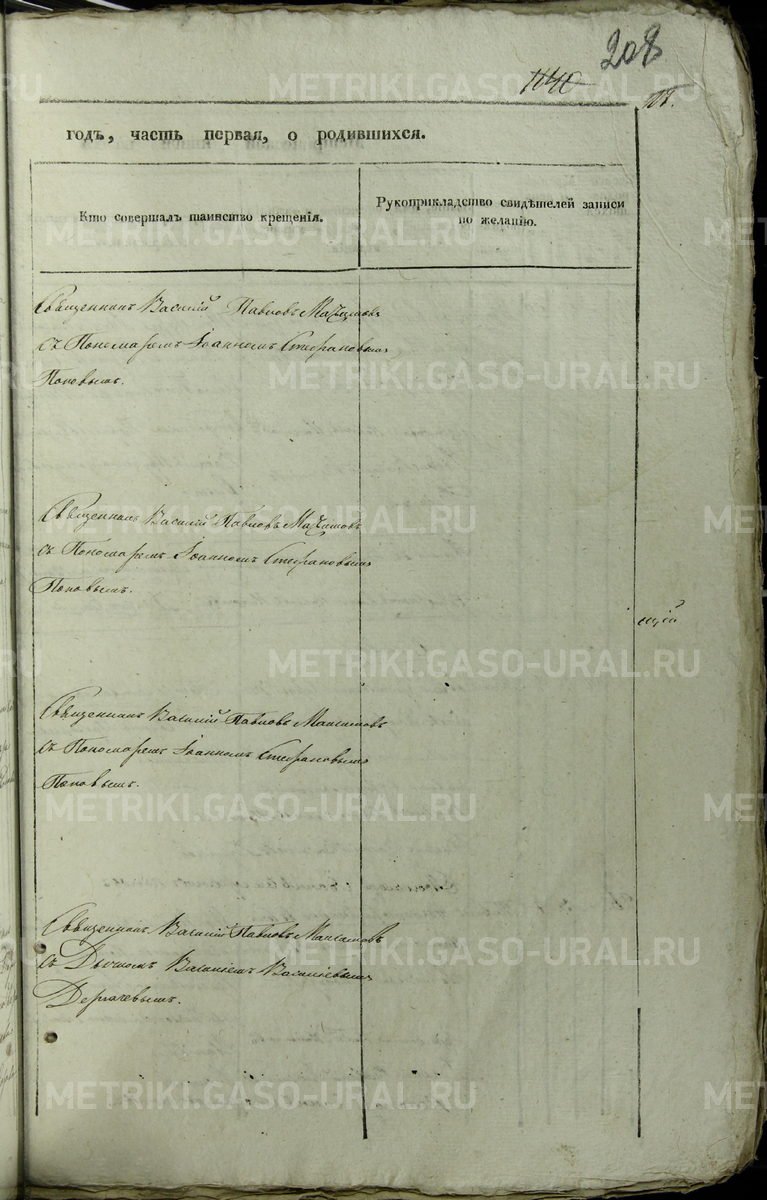 208
годъ, часть первая, о родившихся.
Кто совершалъ таинство крещенія.
Рукоприкладство свидѣтелей записи
по желанію.
Священникъ Василій Павловъ
съ Пономаремъ Іоанномъ Стефановымъ
Поповымъ.
Священникъ Василій Павловъ
съ Пономаремъ Іоанномъ Стефановымъ
Поповымъ.
щій
Священникъ Василій Павловъ
съ Пономаремъ Іоанномъ Стефановымъ
Поповымъ.
Священникъ Василій Павловъ
съ Дьячкомъ Василіемъ Василіевымъ
METRIKI.GASO-URAL.RU